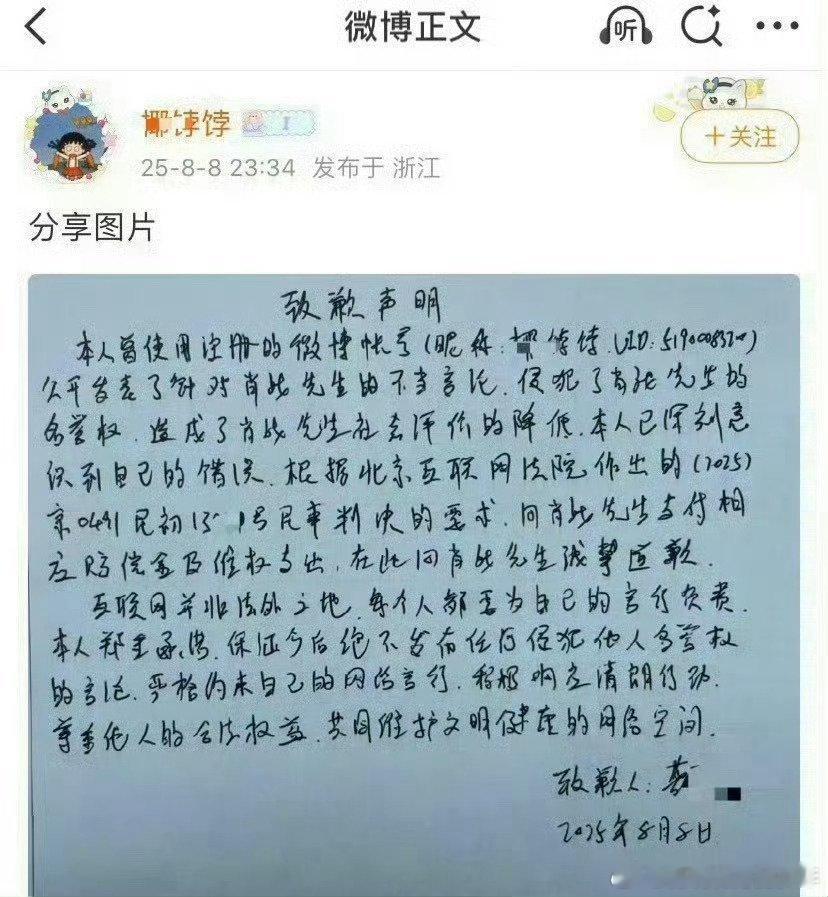 微博正文
听
饽饽
25-8-8 23:34 发布于 浙江
+关注
分享图片
致歉声明
本人曾使用注册的微博帐号(昵称: 饽饽, UID:51900083
公开发表了针对肖战先生的不当言论, 侵犯了肖战先生的
名誉权, 造成了肖战先生社会评价的降低, 本人已深刻意
识到自己的错误. 根据北京互联网法院作出的(2025)
京0491民初1 号民事判决的要求, 向肖战先生支付相
应赔偿金及维权支出, 在此向肖战先生诚挚道歉.
互联网并非法外之地, 每个人都要为自己的言行负责.
本人郑重承诺, 保证今后绝不发布任何侵犯他人名誉权
的言论, 严格约束自己的网络言行, 积极响应清朗行动.
尊重他人的合法权益, 共同维护文明健康的网络空间.
致歉人:
2025年8月8日